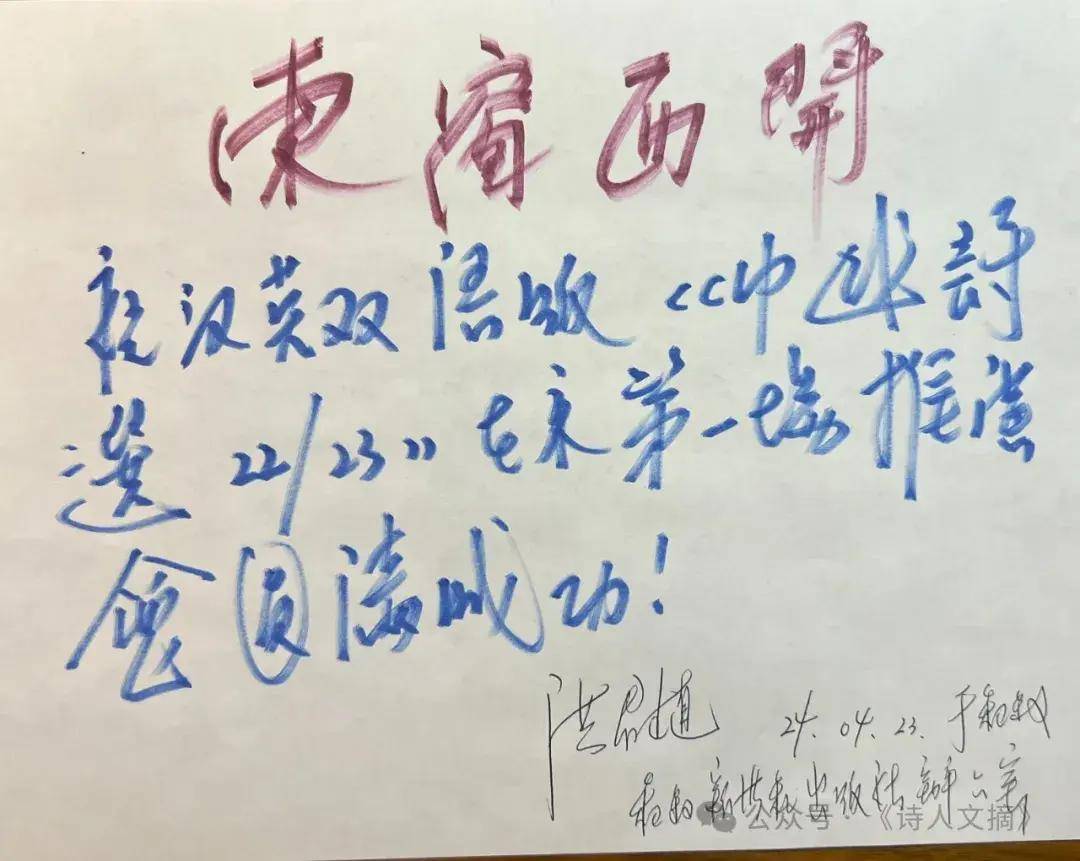 西開
祝汉英双语版《中詩
選 22/23》在京第一場推
會圓滿成功！
洪君植 24.04.23. 于纽约
纽约新世纪出版社办公室
公众号 《诗人文摘》